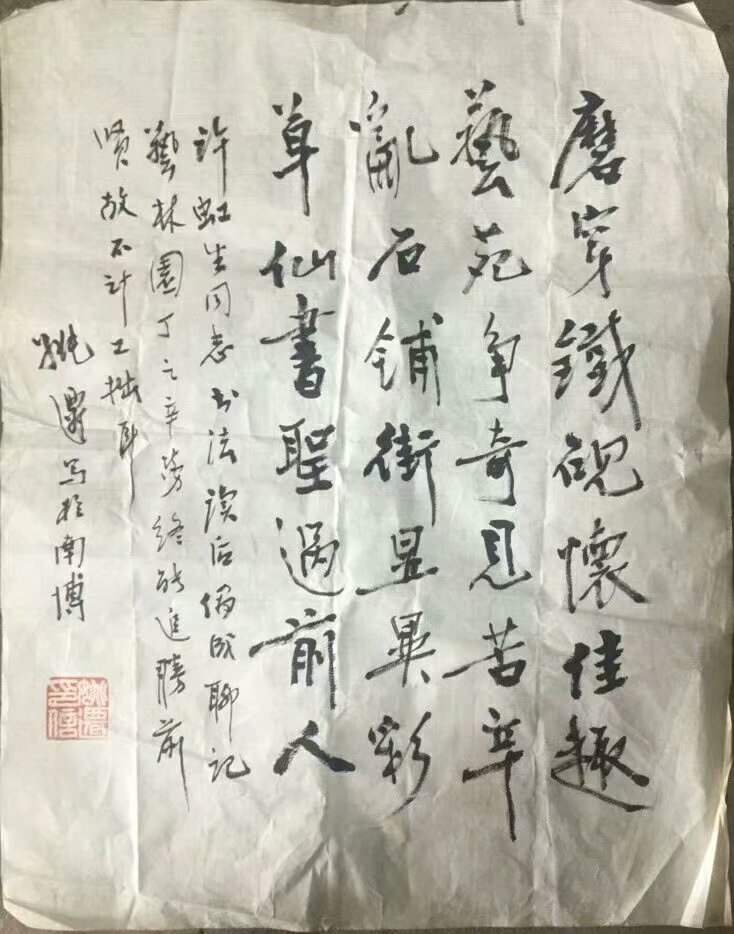 磨穿鐵硯懷佳趣
藝苑争奇見苦辛
亂石铺街显異彩
草仙書聖過前人
許虹生同志书法读后偶成聊记
藝林園丁之辛勞终能進勝前
贤故不计工拙耳
姚遷写於南博
姚遷印信